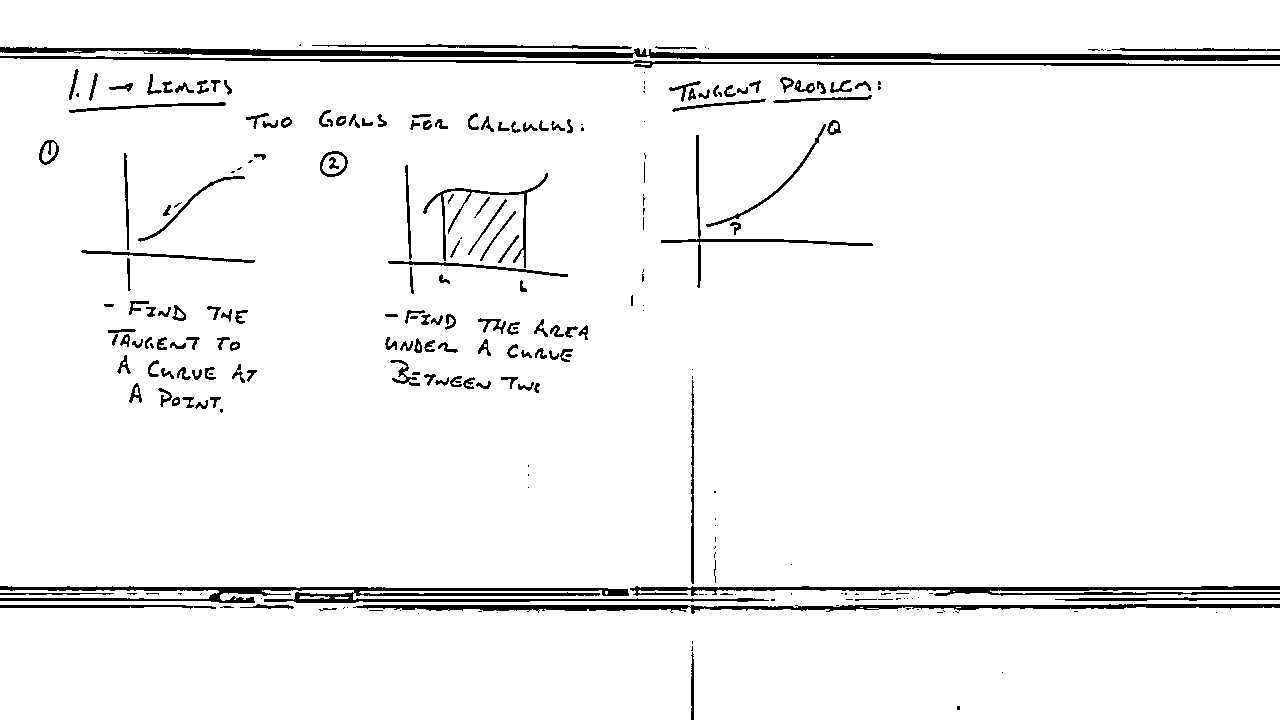 1.1 → LIMITS
TWO GOALS FOR CALCULUS:
①
- FIND THE
TANGENT TO
A CURVE AT
A POINT.
②
a b
- FIND THE AREA
UNDER A CURVE
BETWEEN TWO
TANGENT PROBLEM:
Q
P